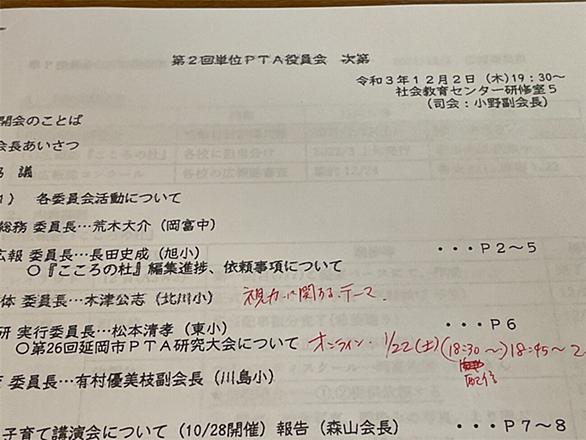 第2回単位PTA役員会 次第
令和3年12月2日（木）19：30～
社会教育センター研修室5
（司会：小野副会長）
開会のことば
会長あいさつ
議
1） 各委員会活動について
総務 委員長…荒木大介（岡富中）
広報 委員長…長田史成（旭小） ・・・P2～5
○『こころの杜』編集進捗、依頼事項について
体 委員長…木津公志（北川小） 視力に関するテーマ
研 実行委員長…松本清孝（東小） ・・・P6
○第26回延岡市PTA研究大会について オンライン・1/22（土）（18：30～）18：45～2
配信
委員長…有村優美枝副会長（川島小）
子育て講演会について（10/28開催）報告（森山会長） ・・・P7～8